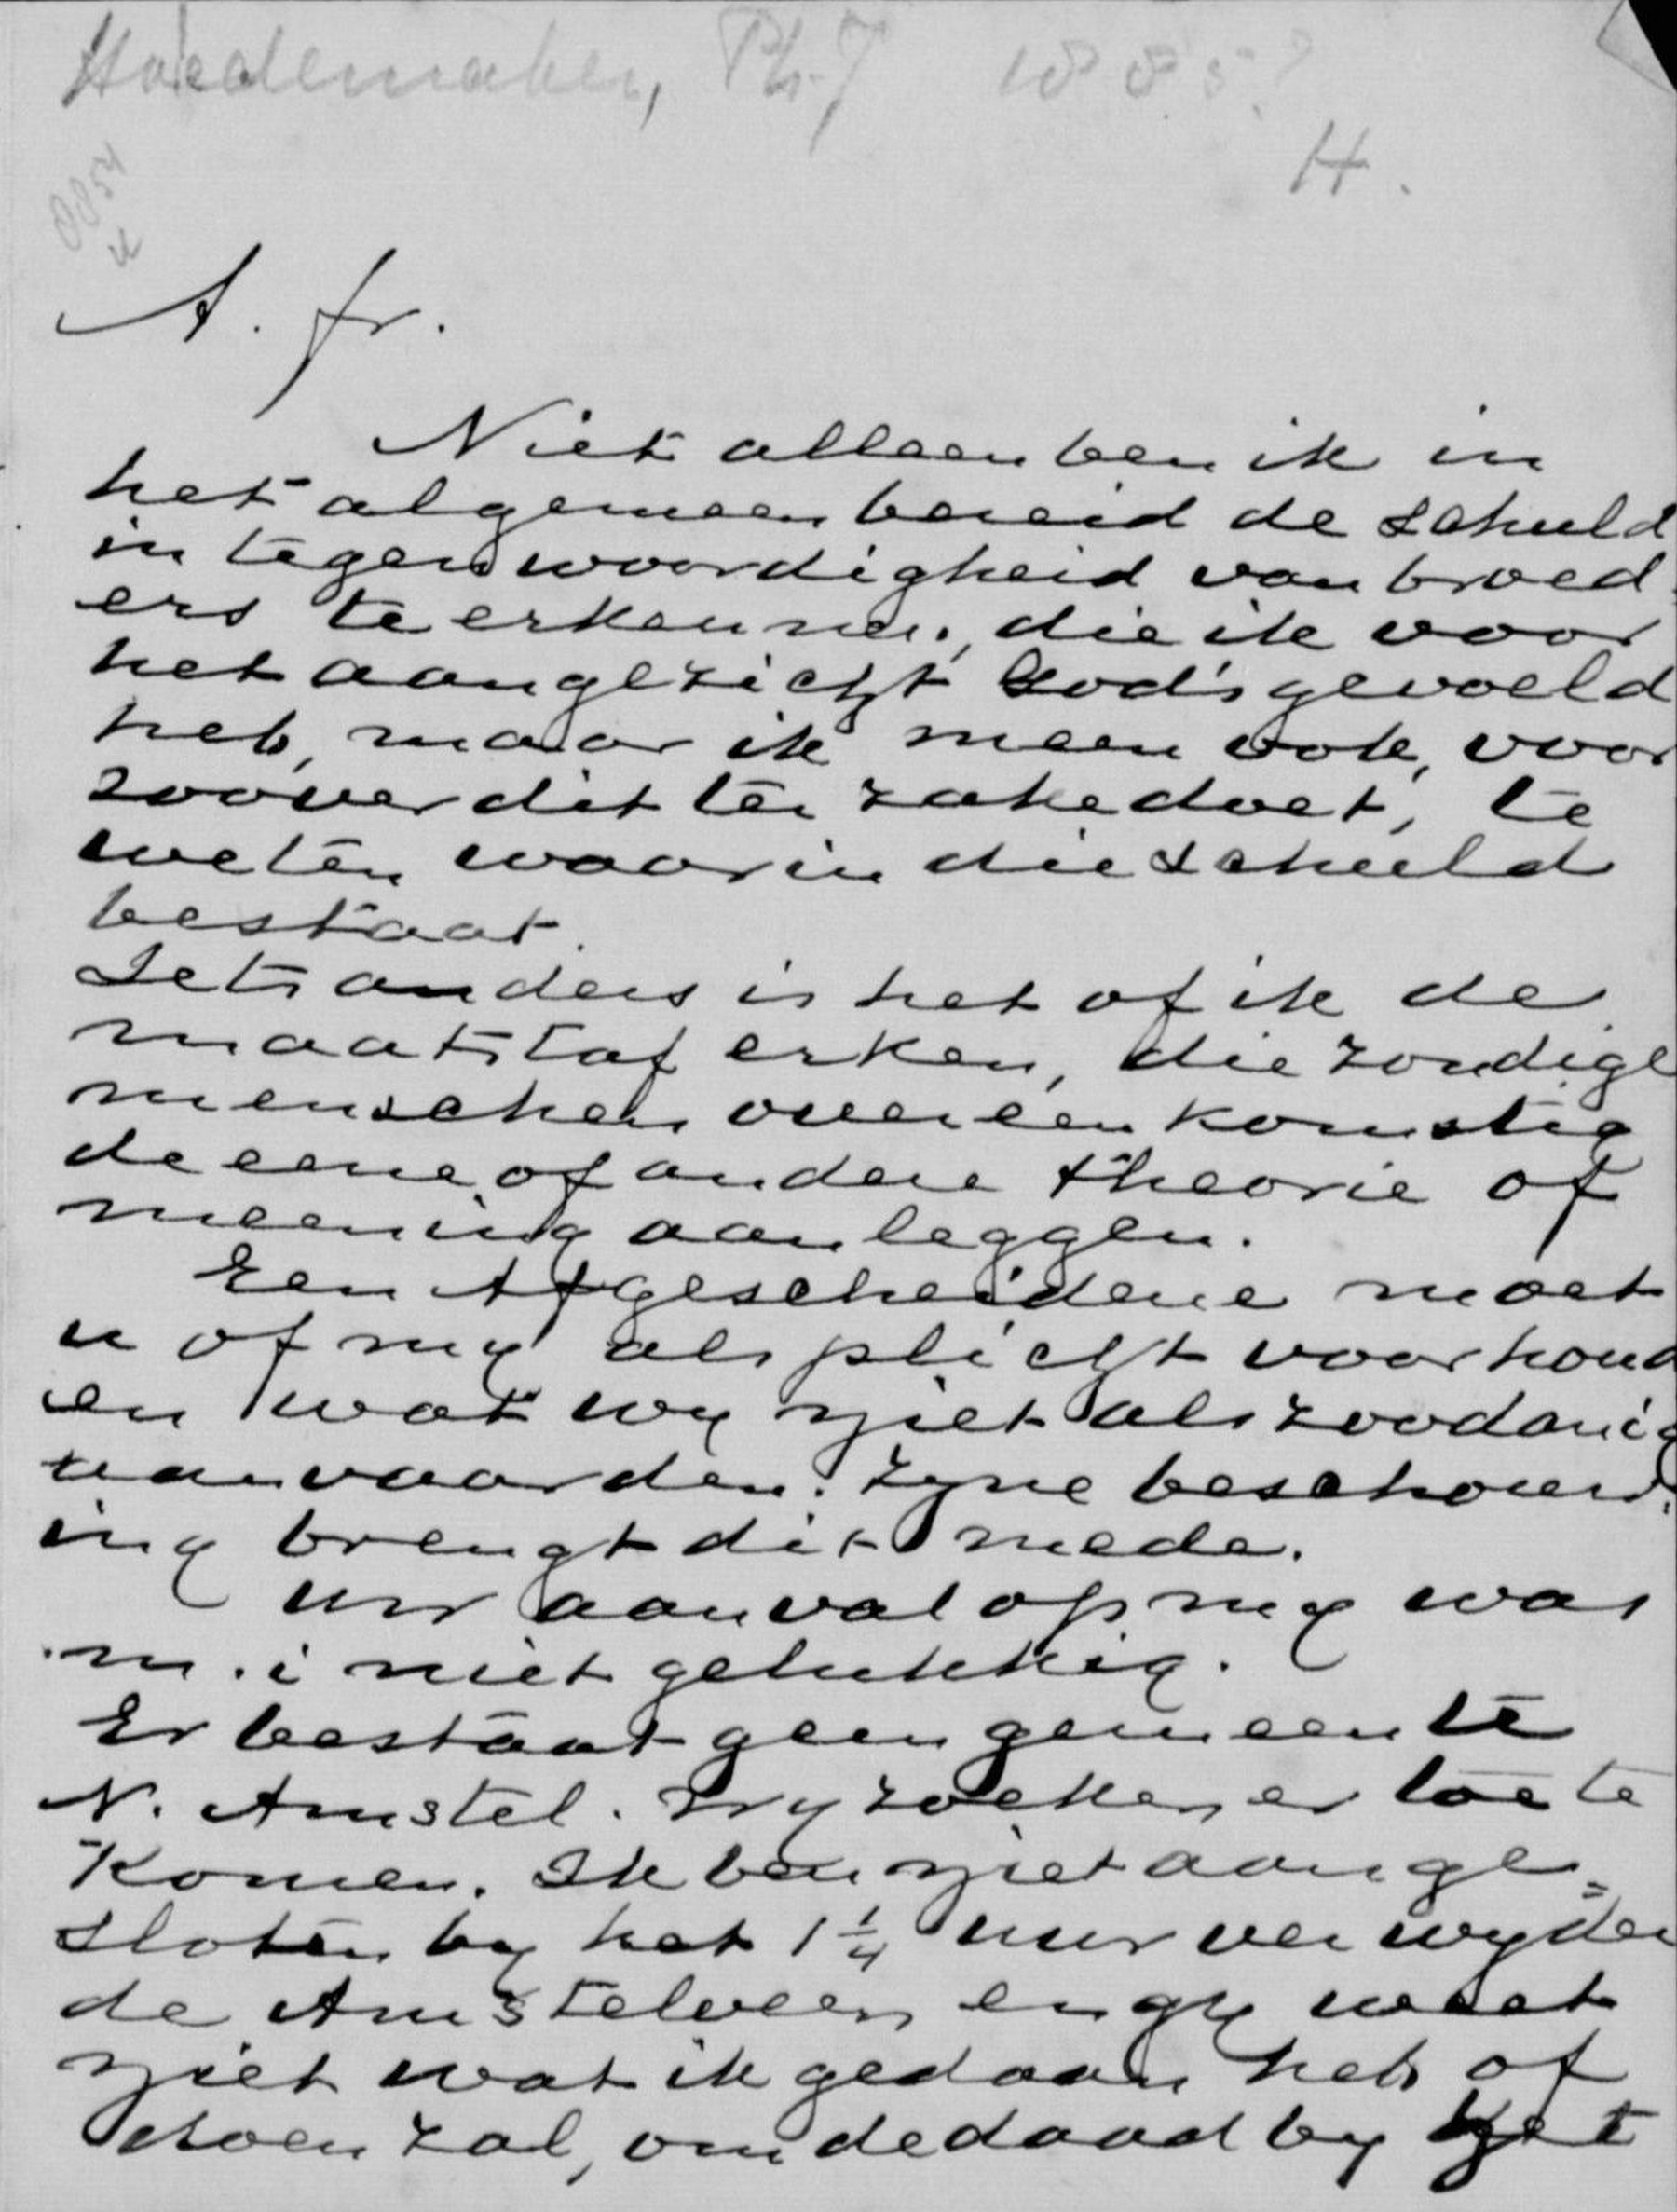 Hoedemaker, Ph. J 1885?
H.
A. fr.
Niet alleen ben ik in
het algemeen bereid de schuld
in tegenwoordigheid van broed
ers te erkennen, die ik voor
het aangezicht God's gevoeld
heb, maar ik meen ook, voor
zoover dit ter zake doet, te
weten waarin die schuld
bestaat.
Iets anders is het of ik de
maatstaf erken, die zondige
menschen overeenkomstig
de eene of andere theorie of
meening aanleggen.
Een Afgescheidene moet
u of my als plicht voorhoud
en wat wy niet als zoodanig
aanvaarden. Zyne beschouw
ing brengt dit mede.
Uw aanval op my was
m. i niet gelukkig.
Er bestaat geen gemeente
N. Amstel. Wy zoeken er toe te
komen. Ik ben niet aange=
sloten by het 1 1/4 uur verwyder
de Amstelveen en gy weet
niet wat ik gedaan heb of
doen zal, om de daad by het